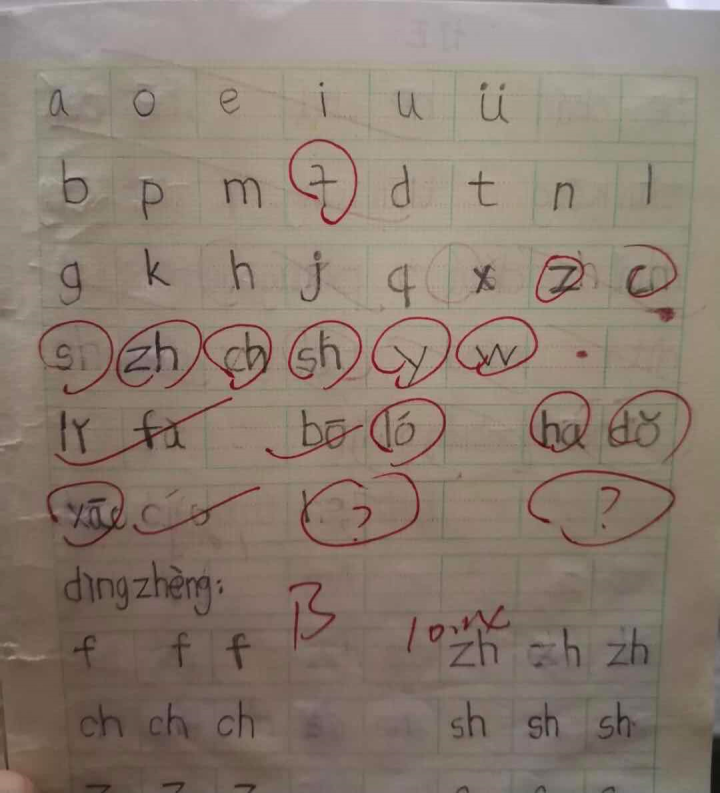 a o e i u ü
b p m f d t n l
g k h j q x z c
s zh ch sh y w
fà bō ló há dǒ
? ?
dìngzhèng:
B
f f f zh zh zh
ch ch ch sh sh sh